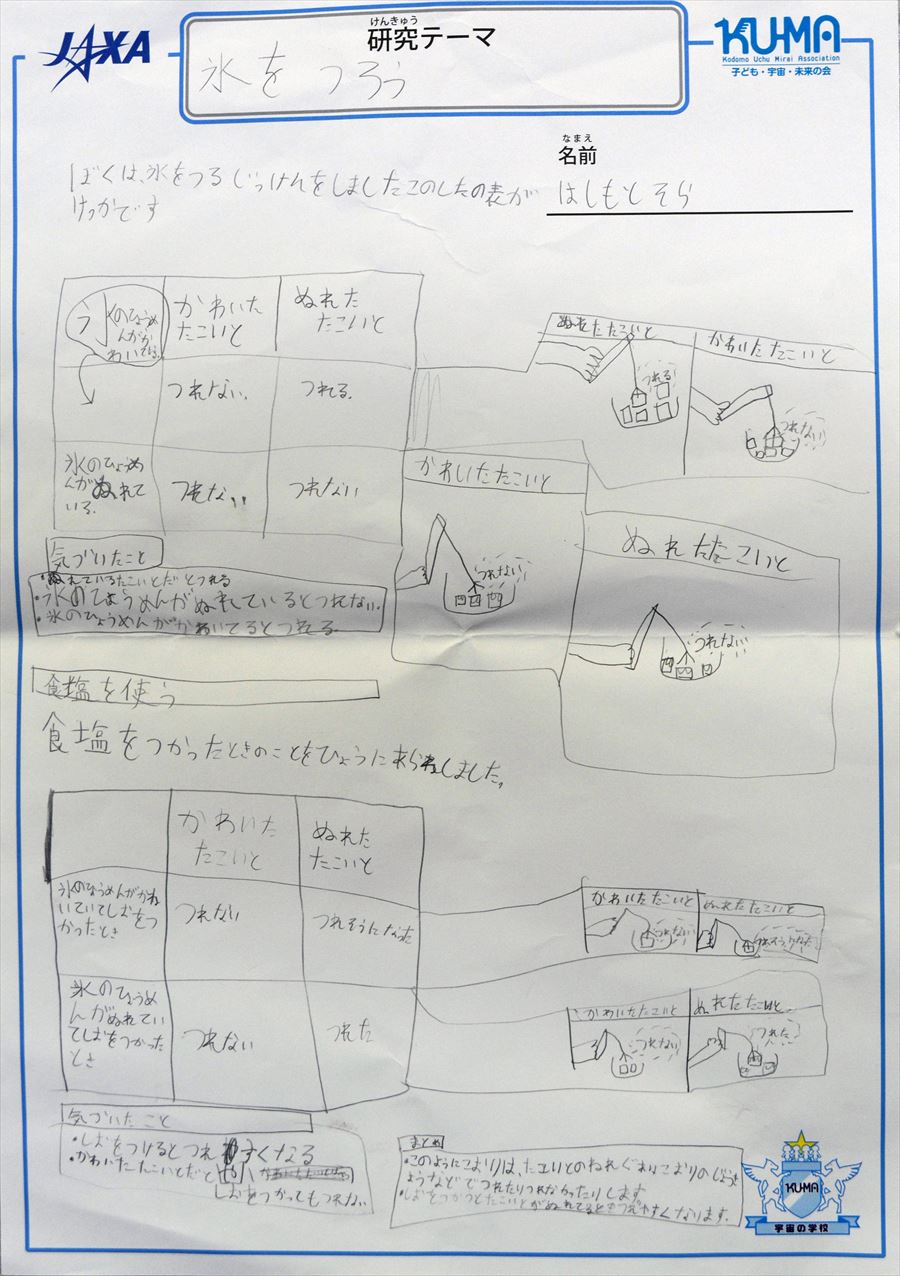 JAXA
けんきゅう
研究テーマ
氷をつろう
KU-MA
Kodomo Uchu Mirai Association
子ども・宇宙・未来の会
なまえ
名前
はしもとそら
ぼくは、氷をつるじっけんをしましたこのしたの表が
けっかです
氷のひょうめ
んがか
わいてる。
かわいた
たこいと
ぬれた
たこいと
つれない。
つれる。
氷のひょうめ
んがぬれて
いる。
つれない
つれない
ぬれたたこいと
つれる
かわいたたこいと
つれない
かわいたたこいと
つれない
ぬれたたこいと
つれない
気づいたこと
・ぬれているたこいとだとつれる
・氷のひょうめんがぬれているとつれない。
・氷のひょうめんがかわいてるとつれる
食塩を使う
食塩をつかったときのことをひょうにあらわしました。
かわいた
たこいと
ぬれた
たこいと
氷のひょうめんがかわ
いていてしおをつ
かったとき
つれない
つれそうになった
氷のひょうめ
んがぬれてい
てしおをつかった
とき
つれない
つれた
かわいたたこいと
つれない
ぬれたたこいと
つれそうになった
かわいたたこいと
つれない
ぬれたたこいと
つれた
気づいたこと
・しおをつけるとつれやすくなる
・かわいたたこいとだと
しおをつかってもつれない
まとめ
・このようにこおりは、たこいとのぬれぐあいこおりのじょうき
ょうなどでつれたりつれなかったりします。
・しおをつかうとたこいとがぬれてるとでつれやすくなります。
KU-MA
宇宙の学校